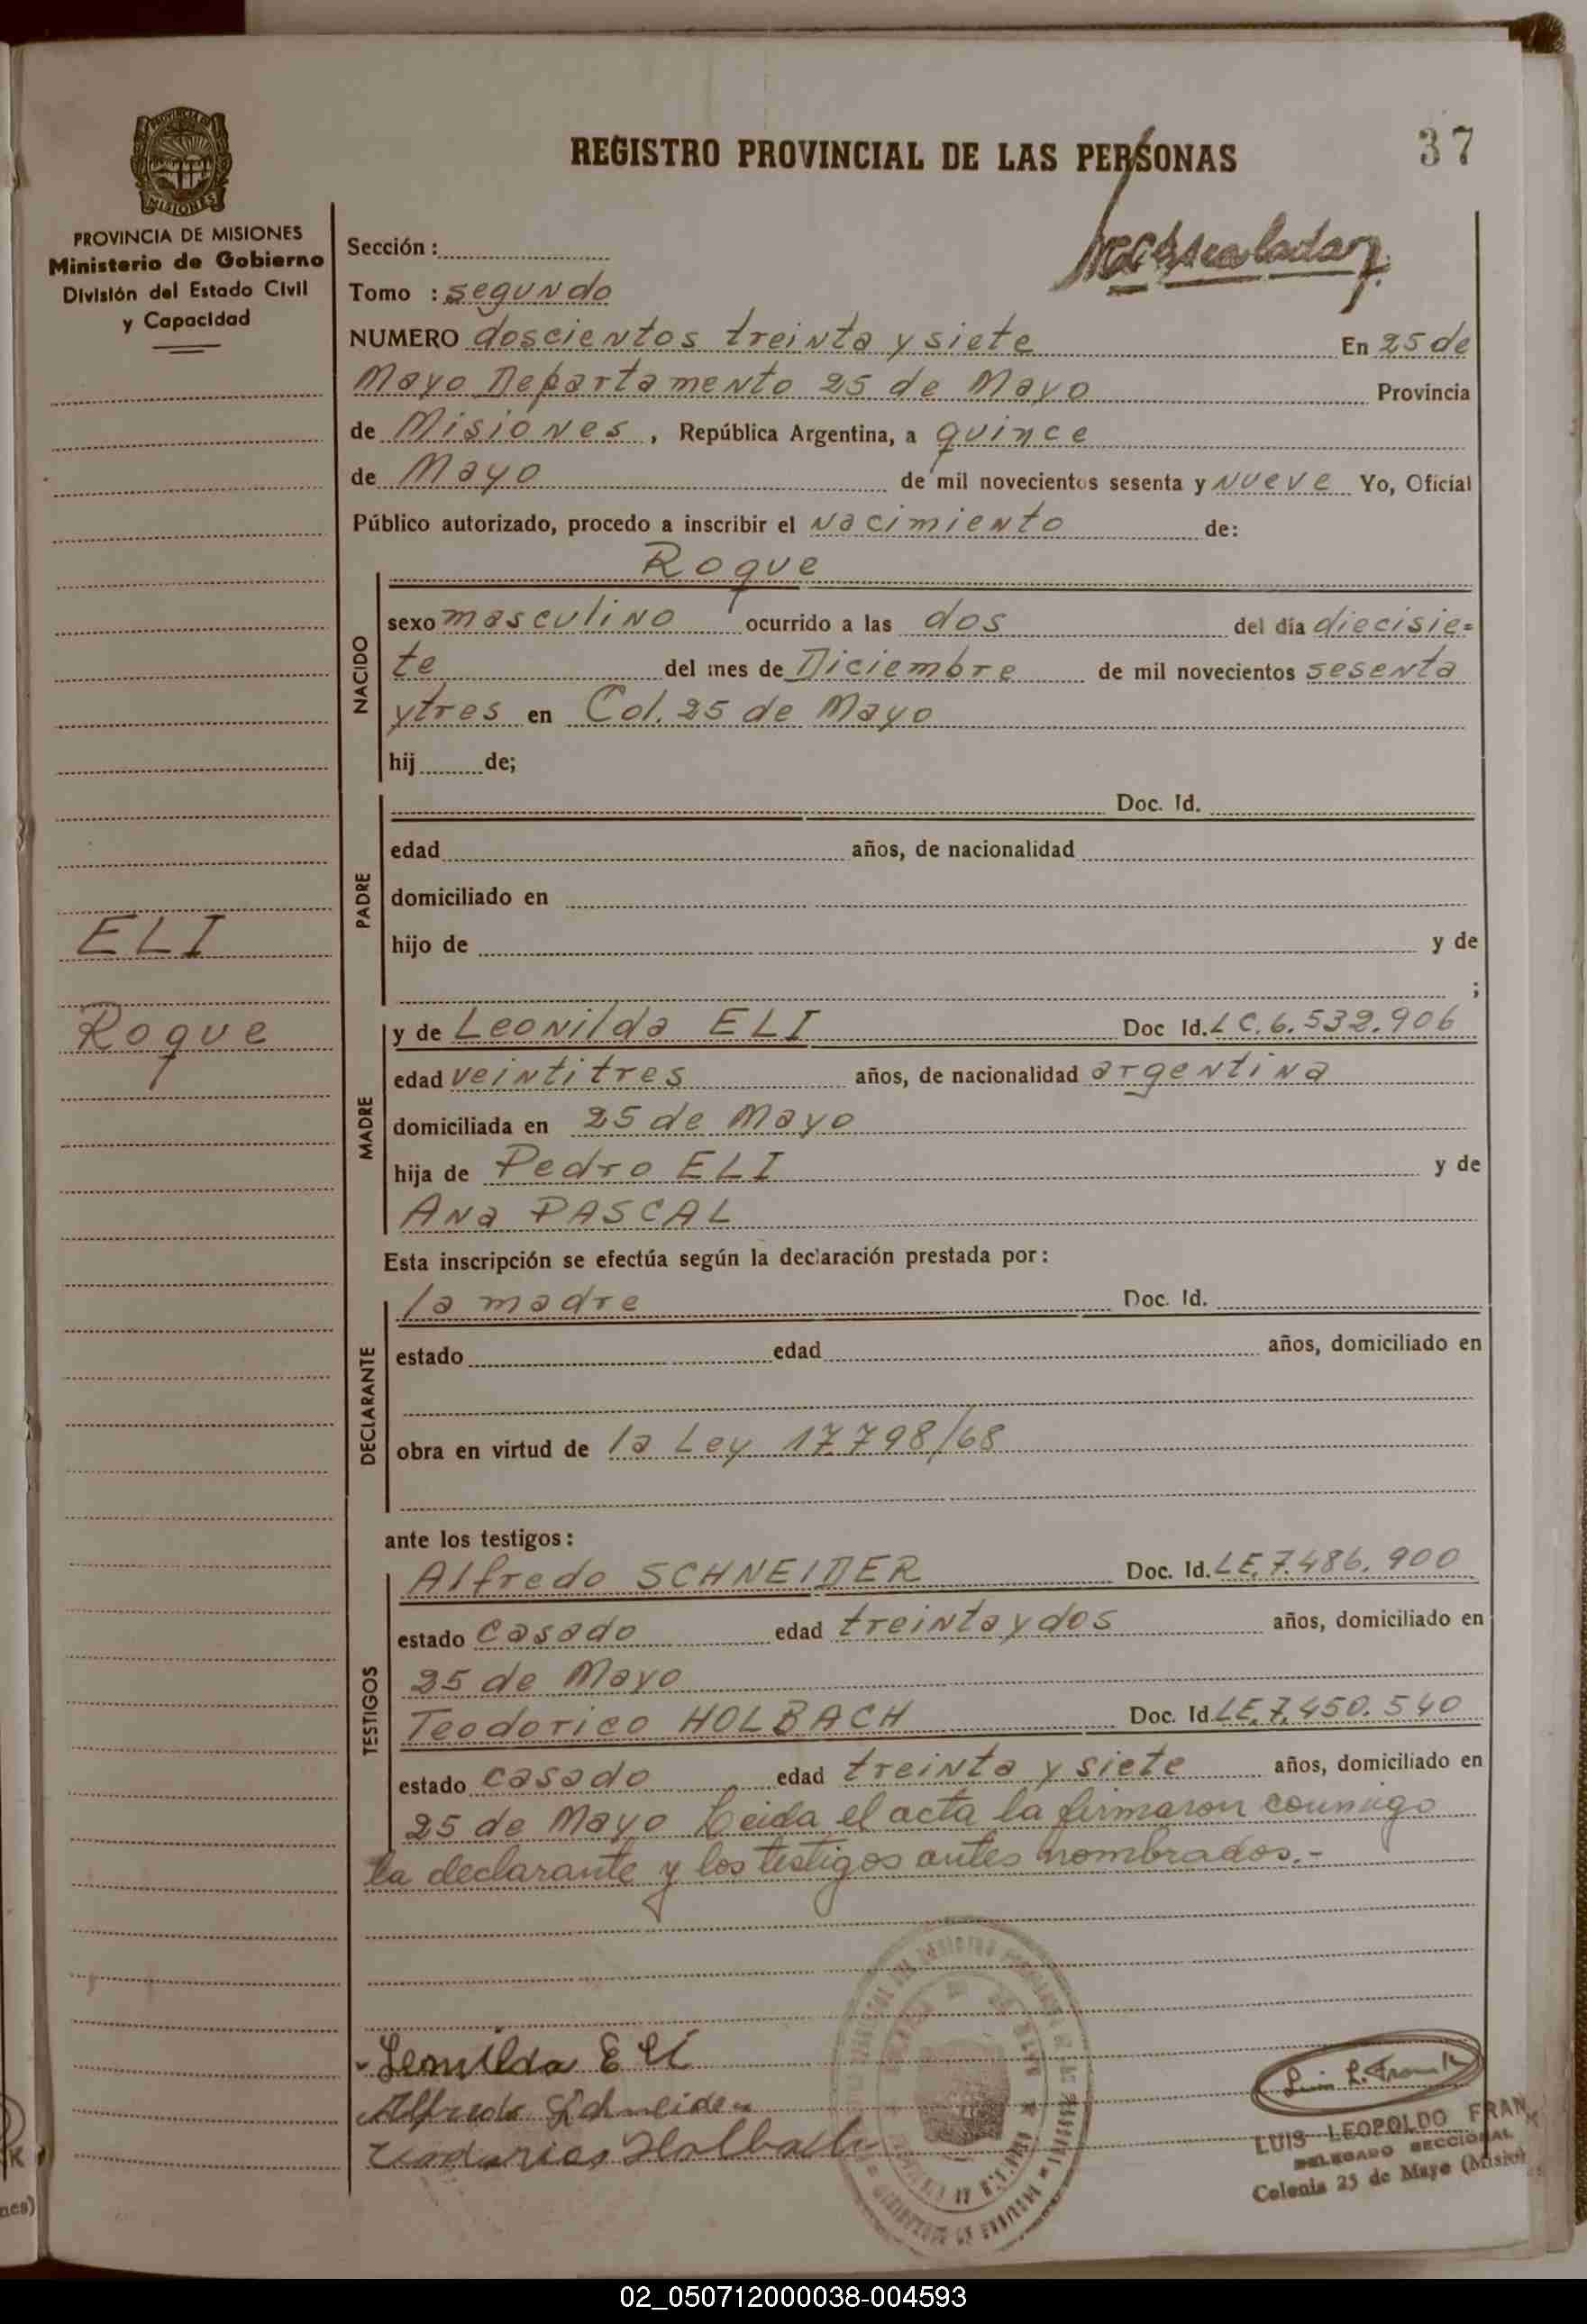 REGISTRO PROVINCIAL DE LAS PERSONAS
37
PROVINCIA DE MISIONES
PROVINCIA DE MISIONES
Ministerio de Gobierno
División del Estado Civil
y Capacidad
Sección :
Tomo : segundo
NUMERO doscientos treinta y siete En 25 de
Mayo Departamento 25 de Mayo Provincia
de Misiones, República Argentina, a quince
de Mayo de mil novecientos sesenta y nueve Yo, Oficial
Público autorizado, procedo a inscribir el nacimiento de:
NACIDO
Roque
sexo masculino ocurrido a las dos del día diecisie=
te del mes de Diciembre de mil novecientos sesenta
y tres en Col. 25 de Mayo
hij de;
PADRE
Doc. Id.
edad años, de nacionalidad
domiciliado en
hijo de y de
;
ELI
Roque
MADRE
y de Leonilda ELI Doc Id. LC. 6.532.906
edad veintitres años, de nacionalidad argentina
domiciliada en 25 de Mayo
hija de Pedro ELI y de
Ana PASCAL
Esta inscripción se efectúa según la declaración prestada por :
DECLARANTE
la madre Doc. Id.
estado edad años, domiciliado en
obra en virtud de la Ley 17798/68
ante los testigos :
TESTIGOS
Alfredo SCHNEIDER Doc. Id. LE. 7.486.900
estado casado edad treinta y dos años, domiciliado en
25 de Mayo
Teodorico HOLBACH Doc. Id LE. 7.450.540
estado casado edad treinta y siete años, domiciliado en
25 de Mayo Leida el acta la firmaron conmigo
la declarante y los testigos antes nombrados.-
Leonilda Eli
Alfredo Schneider
Teodorico Holbach
Luis L. Frank
LUIS LEOPOLDO FRANK
DELEGADO SECCIONAL
Colonia 25 de Mayo (Mision
02_050712000038-004593